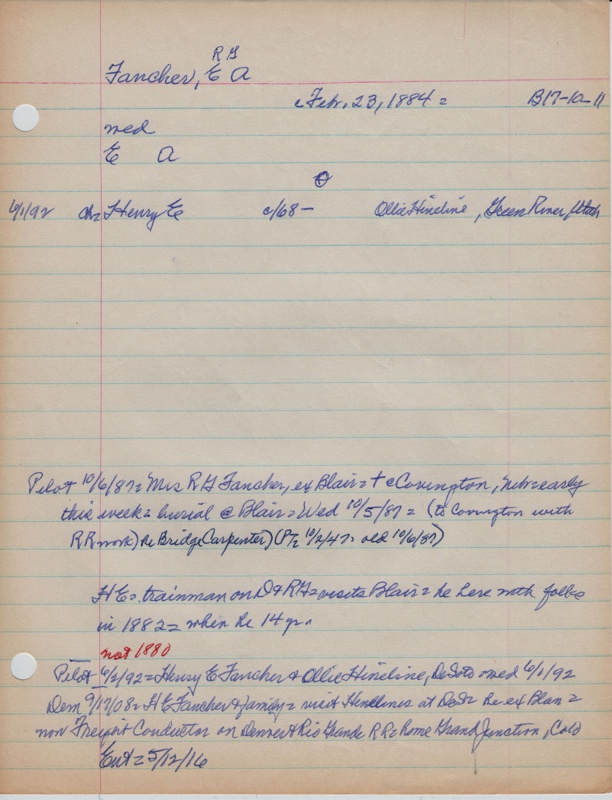 R G
Fancher, E A
c Feb. 23, 1884 = B17-10-11
wed
E A
0
6/1/92 ch= Henry E c/68 - Ollie Hineline, Green River, Utah
Pilot 10/6/87 = Mrs R G Fancher, ex Blair = + c Covington, Neb = early
this week = burial @ Blair = Wed 10/5/87 = (to Covington with
RR work) he Bridge Carpenter) 10/2/47 = old 10/6/87)
H E = trainman on D & RG = visits Blair = he here with folks
in 1882 = when he 14 yr.
not 1880
Pilot 6/2/92 = Henry E Fancher & Ollie Hineline, DeSoto wed 6/1/92
Dem 9/17/08 = H E Fancher & family = visit Hinelines at DeS = he ex Blair =
now Freight Conductor on Denver & Rio Grande RR = home Grand Junction, Colo
Ent = 5/12/16